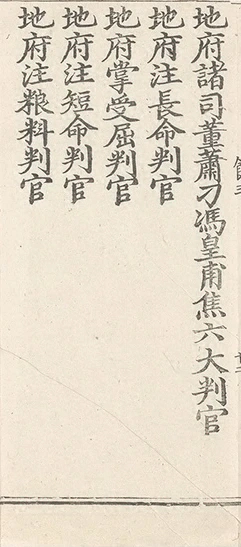 地府諸司董蕭刁馮皇甫焦六大判官
地府注長命判官
地府掌受屈判官
地府注短命判官
地府注粮料判官